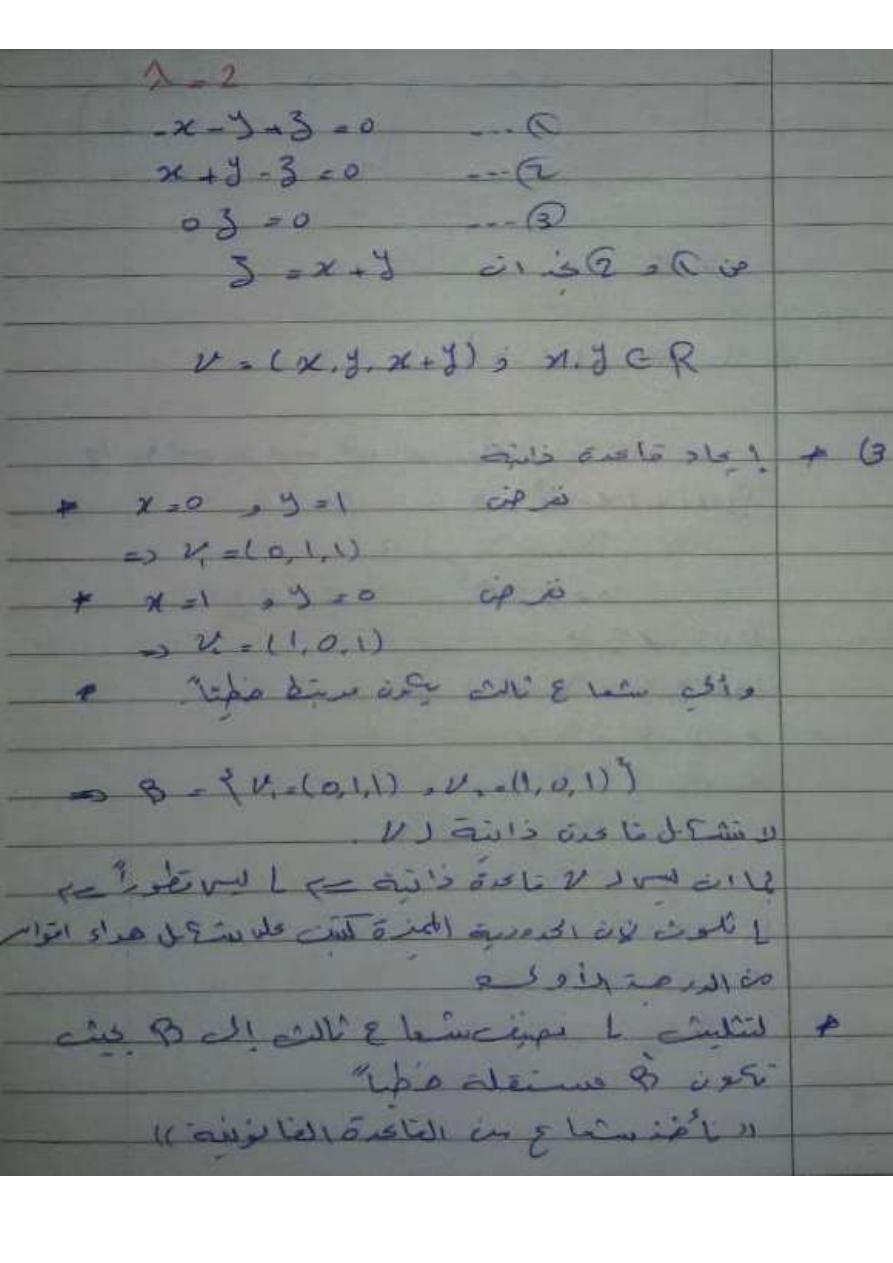 λ = 2
-x - y + z = 0 ---- ①
x + y - z = 0 --- ②
0 z = 0 ---- ③
من ① و ② نجد ان z = x + y
v = (x, y, x+y) ; x, y ∈ R
3) * إيجاد قاعدة ذاتية
* نفرض x = 0 , y = 1
=> v₁ = (0, 1, 1)
* نفرض x = 1 , y = 0
=> v₂ = (1, 0, 1)
* وأي شعاع ثالث يكون مرتبط خطياً
=> B = {v₁ = (0,1,1) , v₂ = (1,0,1)}
لا تشكل قاعدة ذاتية لـ V.
بما ان ليس لـ V قاعدة ذاتية <= L ليس تطورياً <=
L ثلوث لأن الحدودية المميزة كتبت على شكل جداء اقواس
من الدرجة الأولى
* لتثليث L نضيف شعاع ثالث إلى B بحيث
تكون B́ مستقلة خطياً
"نأخذ شعاع من القاعدة القانونية"